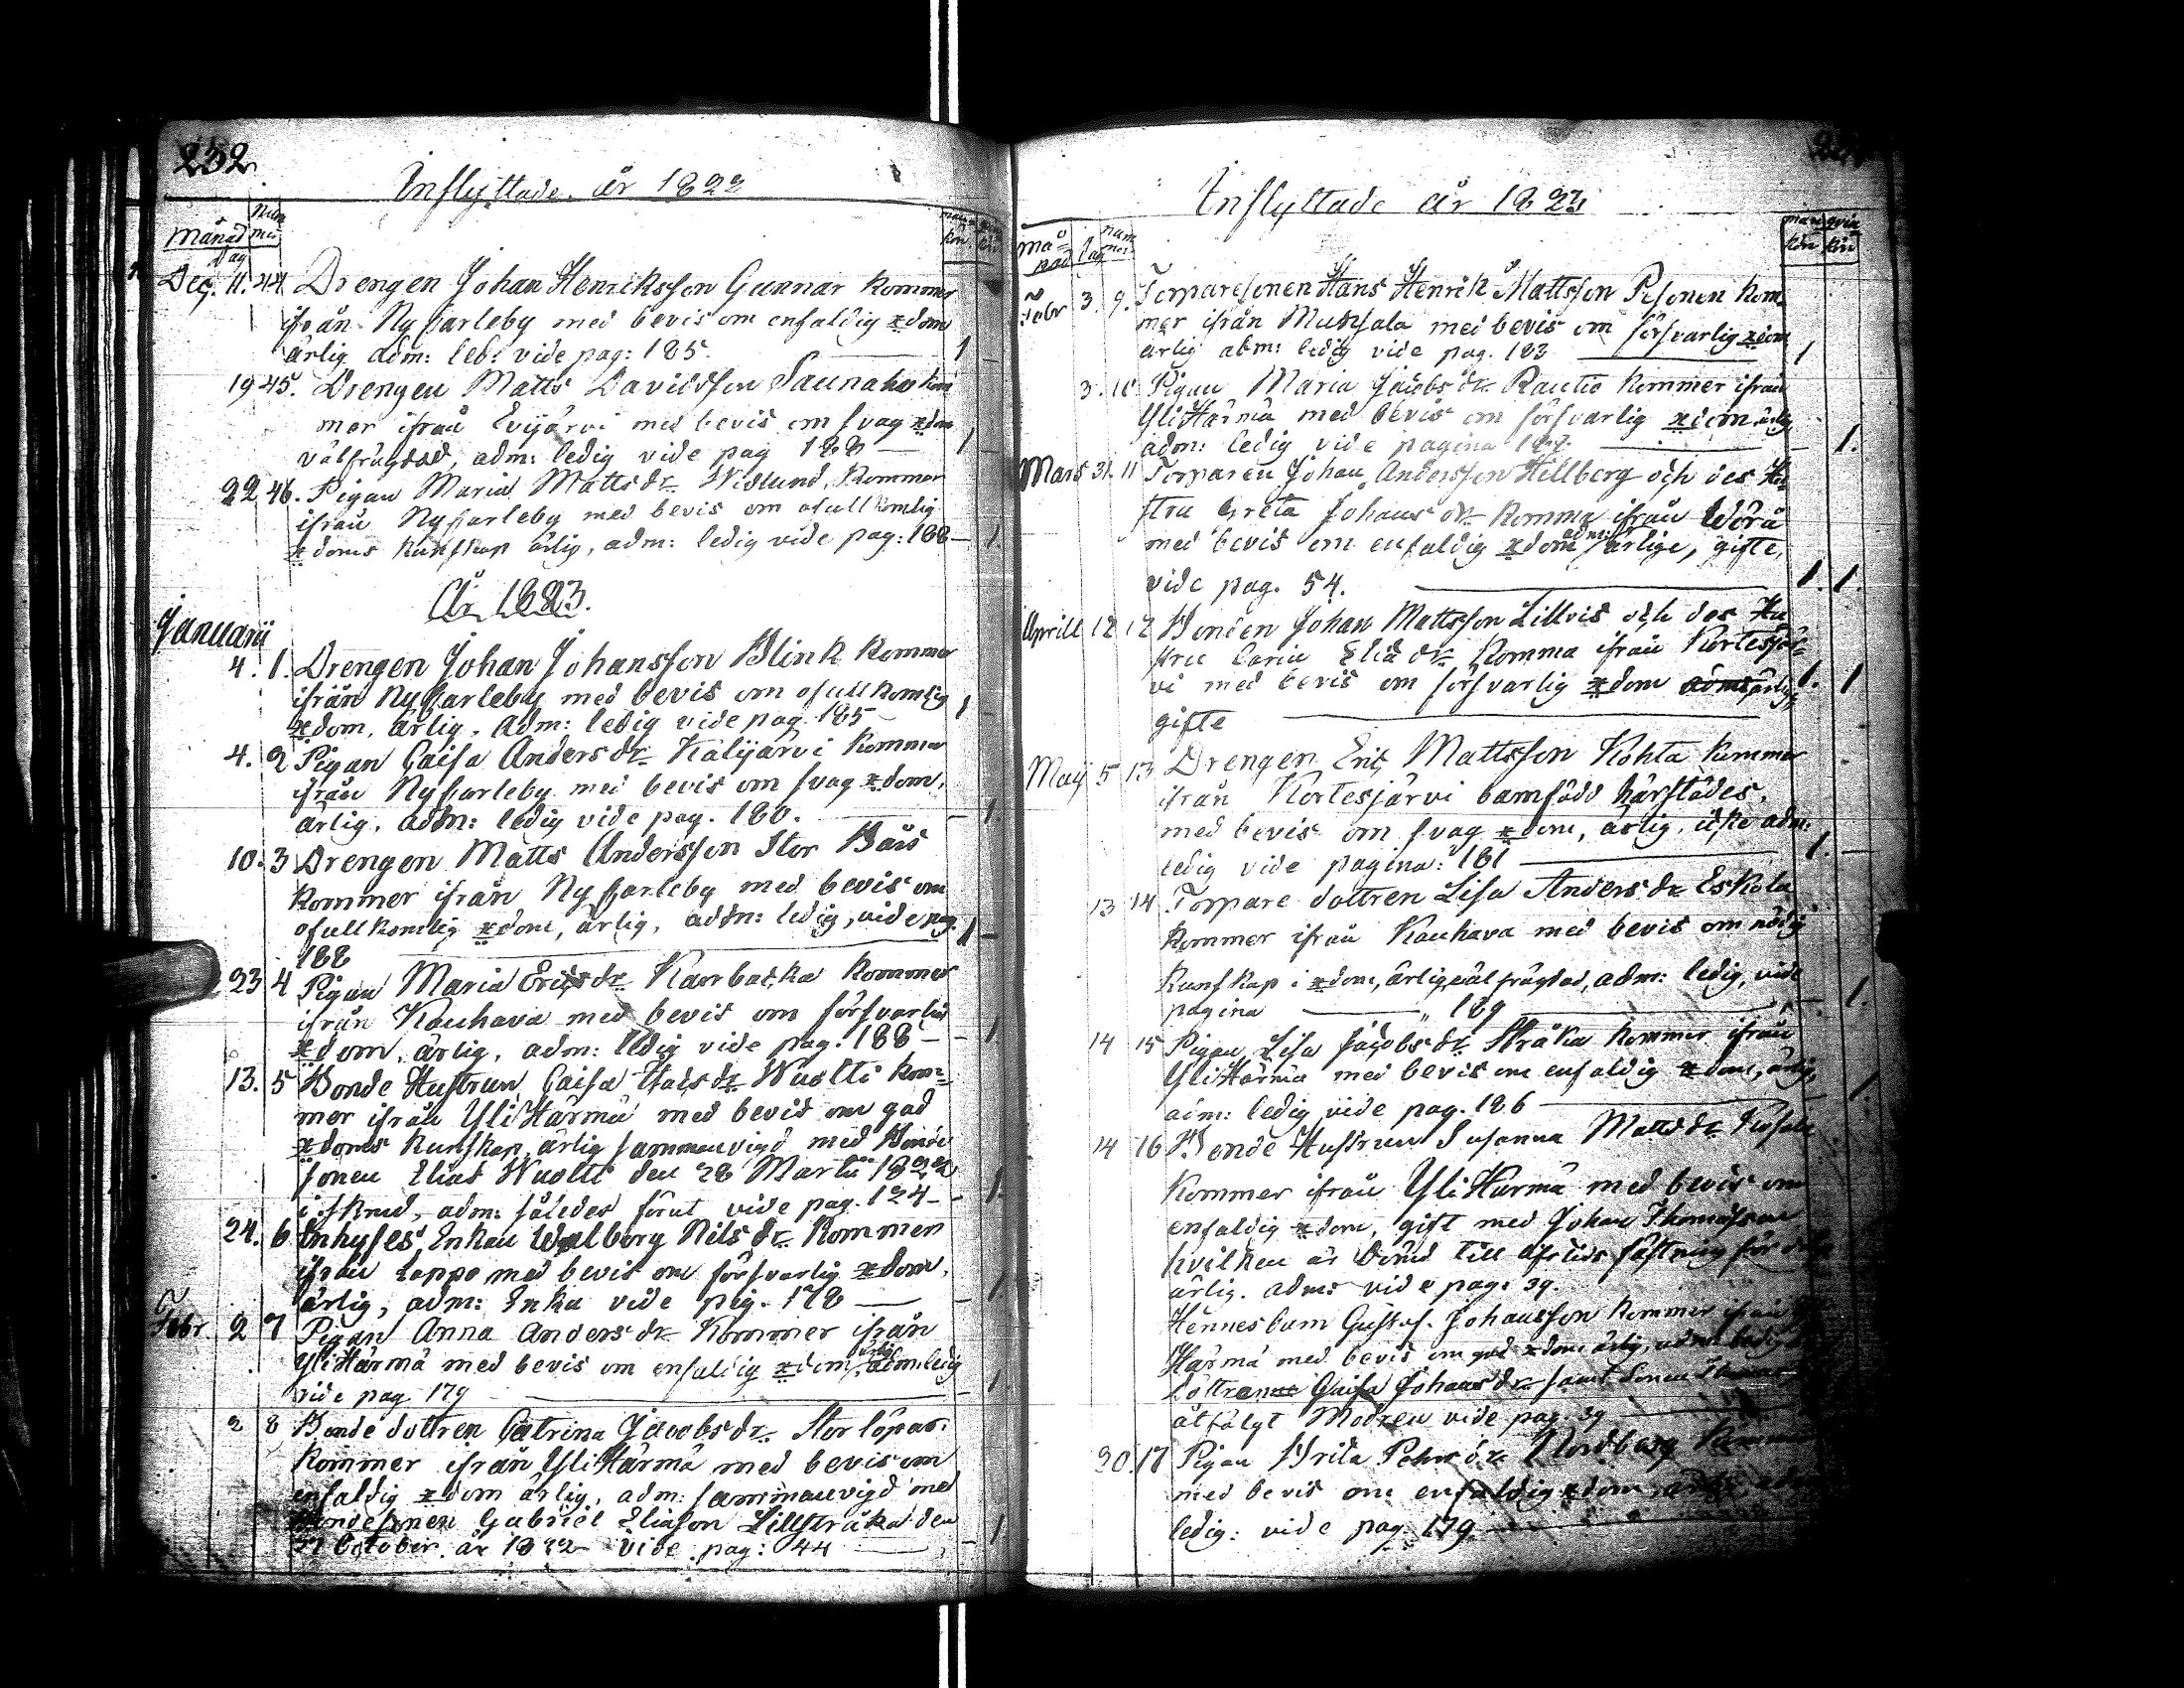 232
Inflyttade år 1822
Månad
Dag
Num
mer
mann
kön
qvin
kön
Dec. 11. 44 Drengen Johan Henriksson Gunnar kommer
ifrån Nycarleby med bevis om enfaldig xdom
ärlig adm: led: vide pag: 185. 1 –
19 45. Drengen Matts Davidsson Saunaho kom
mer ifrån Evijärvi med bevis om svag xdom
välfrägdad, adm: ledig vide pag 188 – 1 –
22 46. Pigan Maria Mattsdr Widlund, kommer
ifrån Nycarleby med bevis om ofullkomlig
xdoms kunskap ärlig, adm: ledig vide pag: 188 – 1
År 1823.
Januarii
4. 1. Drengen Johan Johansson Blink kommer
ifrån Nycarleby med bevis om ofullkomlig
xdom, ärlig, adm: ledig vide pag. 185 – 1 –
4. 2 Pigan Caisa Andersdr Kälijärvi kommer
ifrån Nycarleby med bevis om svag xdom,
ärlig, adm: ledig vide pag. 180. – 1.
10. 3 Drengen Matts Andersson Stor
kommer ifrån Nycarleby med bevis om
ofullkomlig xdom, ärlig, adm: ledig, vide pag. 1 –
188
23 4 Pigan Maria Ericsdr Karrbacka kommer
ifrån Kauhava med bevis om försvarlig
xdom, ärlig, adm: ledig vide pag. 188 – – 1
13. 5 Bonde Hustrun Caisa Isacsdr Wuolti kom=
mer ifrån Yli Härmä med bevis om god
xdoms kunskap, ärlig sammanvigd med Bonde
sonen Elias Wuolti den 28 Martii 1822
adm: således förut vide pag. 124 – – 1.
24. 6 Inhyses Enkan Walborg Nilsdr kommer
ifrån Lappo med bevis om försvarlig xdom,
ärlig, adm: Enka vide pag. 178 — – 1.
Febr 2 7 Pigan Anna Andersdr kommer ifrån
Yli Härmä med bevis om enfaldig xdom, ärlig adm: ledig
vide pag. 179 – 1
2 8 Bonde dottren Catrina Jacobsdr Storlöpar
kommer ifrån Yli Härmä med bevis om
enfaldig xdom ärlig, adm: sammanvigd med
Bondesonen Gabriel Eliasson Lillstråka den
27 October år 1822 vide pag: 44 — – 1
Inflyttade år 1823
Må=
nad
dag
num
mer
man
kön
qvin
kön
Febr 3. 9. Torparesonen Hans Henrik Mattsson Pesonen kom
mer ifrån Munsala med bevis om försvarlig xdom
ärlig adm: ledig vide pag. 183 — 1
3. 10 Pigan Maria Jacobsdr Rautio kommer ifrån
Yli Härmä med bevis om försvarlig xdom ärlig
adm: ledig vide pagina – 1.
Mars 31. 11 Torparen Johan Andersson Hillberg och des Hu
stru Greta Johansdr komma ifrån Wörå
med bevis om enfaldig xdom adm: ärlige, gifte,
vide pag. 54. 1. 1.
Aprill 12 12 Bonden Johan Mattsson Lillvis och des Hu
stru Carin Eliædr komma ifrån Kortesjär=
vi med bevis om försvarlig xdom adm: ärlige, 1. 1
gifte
Maij 5 13 Drengen Eric Mattsson Kohta kommer
ifrån Kortesjärvi barnfödd härstädes,
med bevis om svag xdom, ärlig, icke adm.
ledig vide pagina: 181 — 1. –
13 14 Torpare dottren Lisa Andersdr Eskola
kommer ifrån Kauhava med bevis om nödig
kunskap i xdom, ärlig, väl frägdad, adm: ledig, vide
pagina — " 189 — – 1.
14 15 Pigan Lisa Jacobsdr Stråka kommer ifrån
Yli Härmä med bevis om enfaldig xdom, ärlig,
adm: ledig vide pag. 186 – 1.
14 16 Bonde Hustrun Susanna Mattsdr
kommer ifrån Yli Härmä med bevis om
enfaldig xdom, gift med Johan Thomasson
hvilken är dömd till fästning för
ärlig. adm: vide pag: 39.
Hennes barn Gustaf Johansson kommer ifrån
Härmä med bevis om god xdom ärlig, adm: ledig
dottranne Caisa Johansdr samt Sonen
åtfölgt Modren vide pag. 39
30. 17 Pigan Brita Pehrsdr Nordberg kommer
med bevis om enfaldig xdom, ärlig, adm
ledig: vide pag. 179